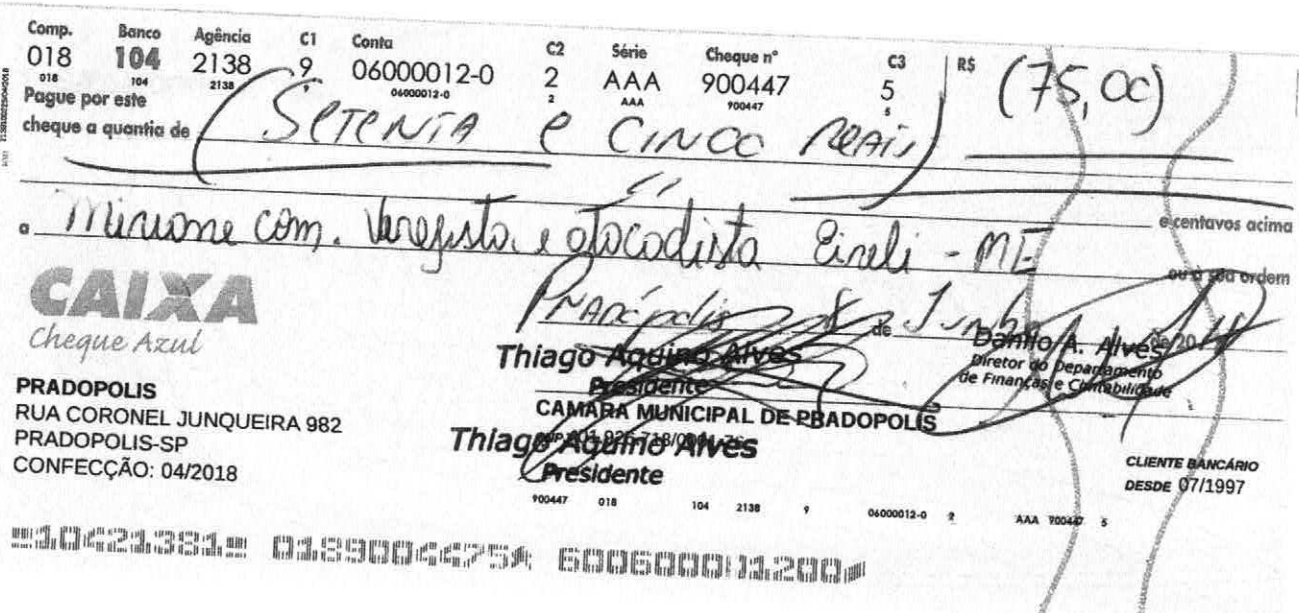 Comp. Banco Agência C1 Conta C2 Série Cheque nº C3 R$ (75,00)
018 104 2138 9 06000012-0 2 AAA 900447 5
018 104 2138 06000012-0 2 AAA 900447 5
Pague por este
cheque a quantia de (Setenta e cinco reais)
e centavos acima
a com. varejista e atacadista Eireli - ME
ou à sua ordem
CAIXA
Cheque Azul
Pradópolis 8 de Junho de 20
Thiago Aquino Alves
Presidente
Danilo A. Alves
Diretor do Departamento
de Finanças e Contabilidade
CAMARA MUNICIPAL DE PRADOPOLIS
Thiago Aquino Alves
Presidente
PRADOPOLIS
RUA CORONEL JUNQUEIRA 982
PRADOPOLIS-SP
CONFECÇÃO: 04/2018
CLIENTE BANCÁRIO
DESDE 07/1997
900447 018 104 2138 9 06000012-0 2 AAA 900447 5
10421381 0189004475 600600001200